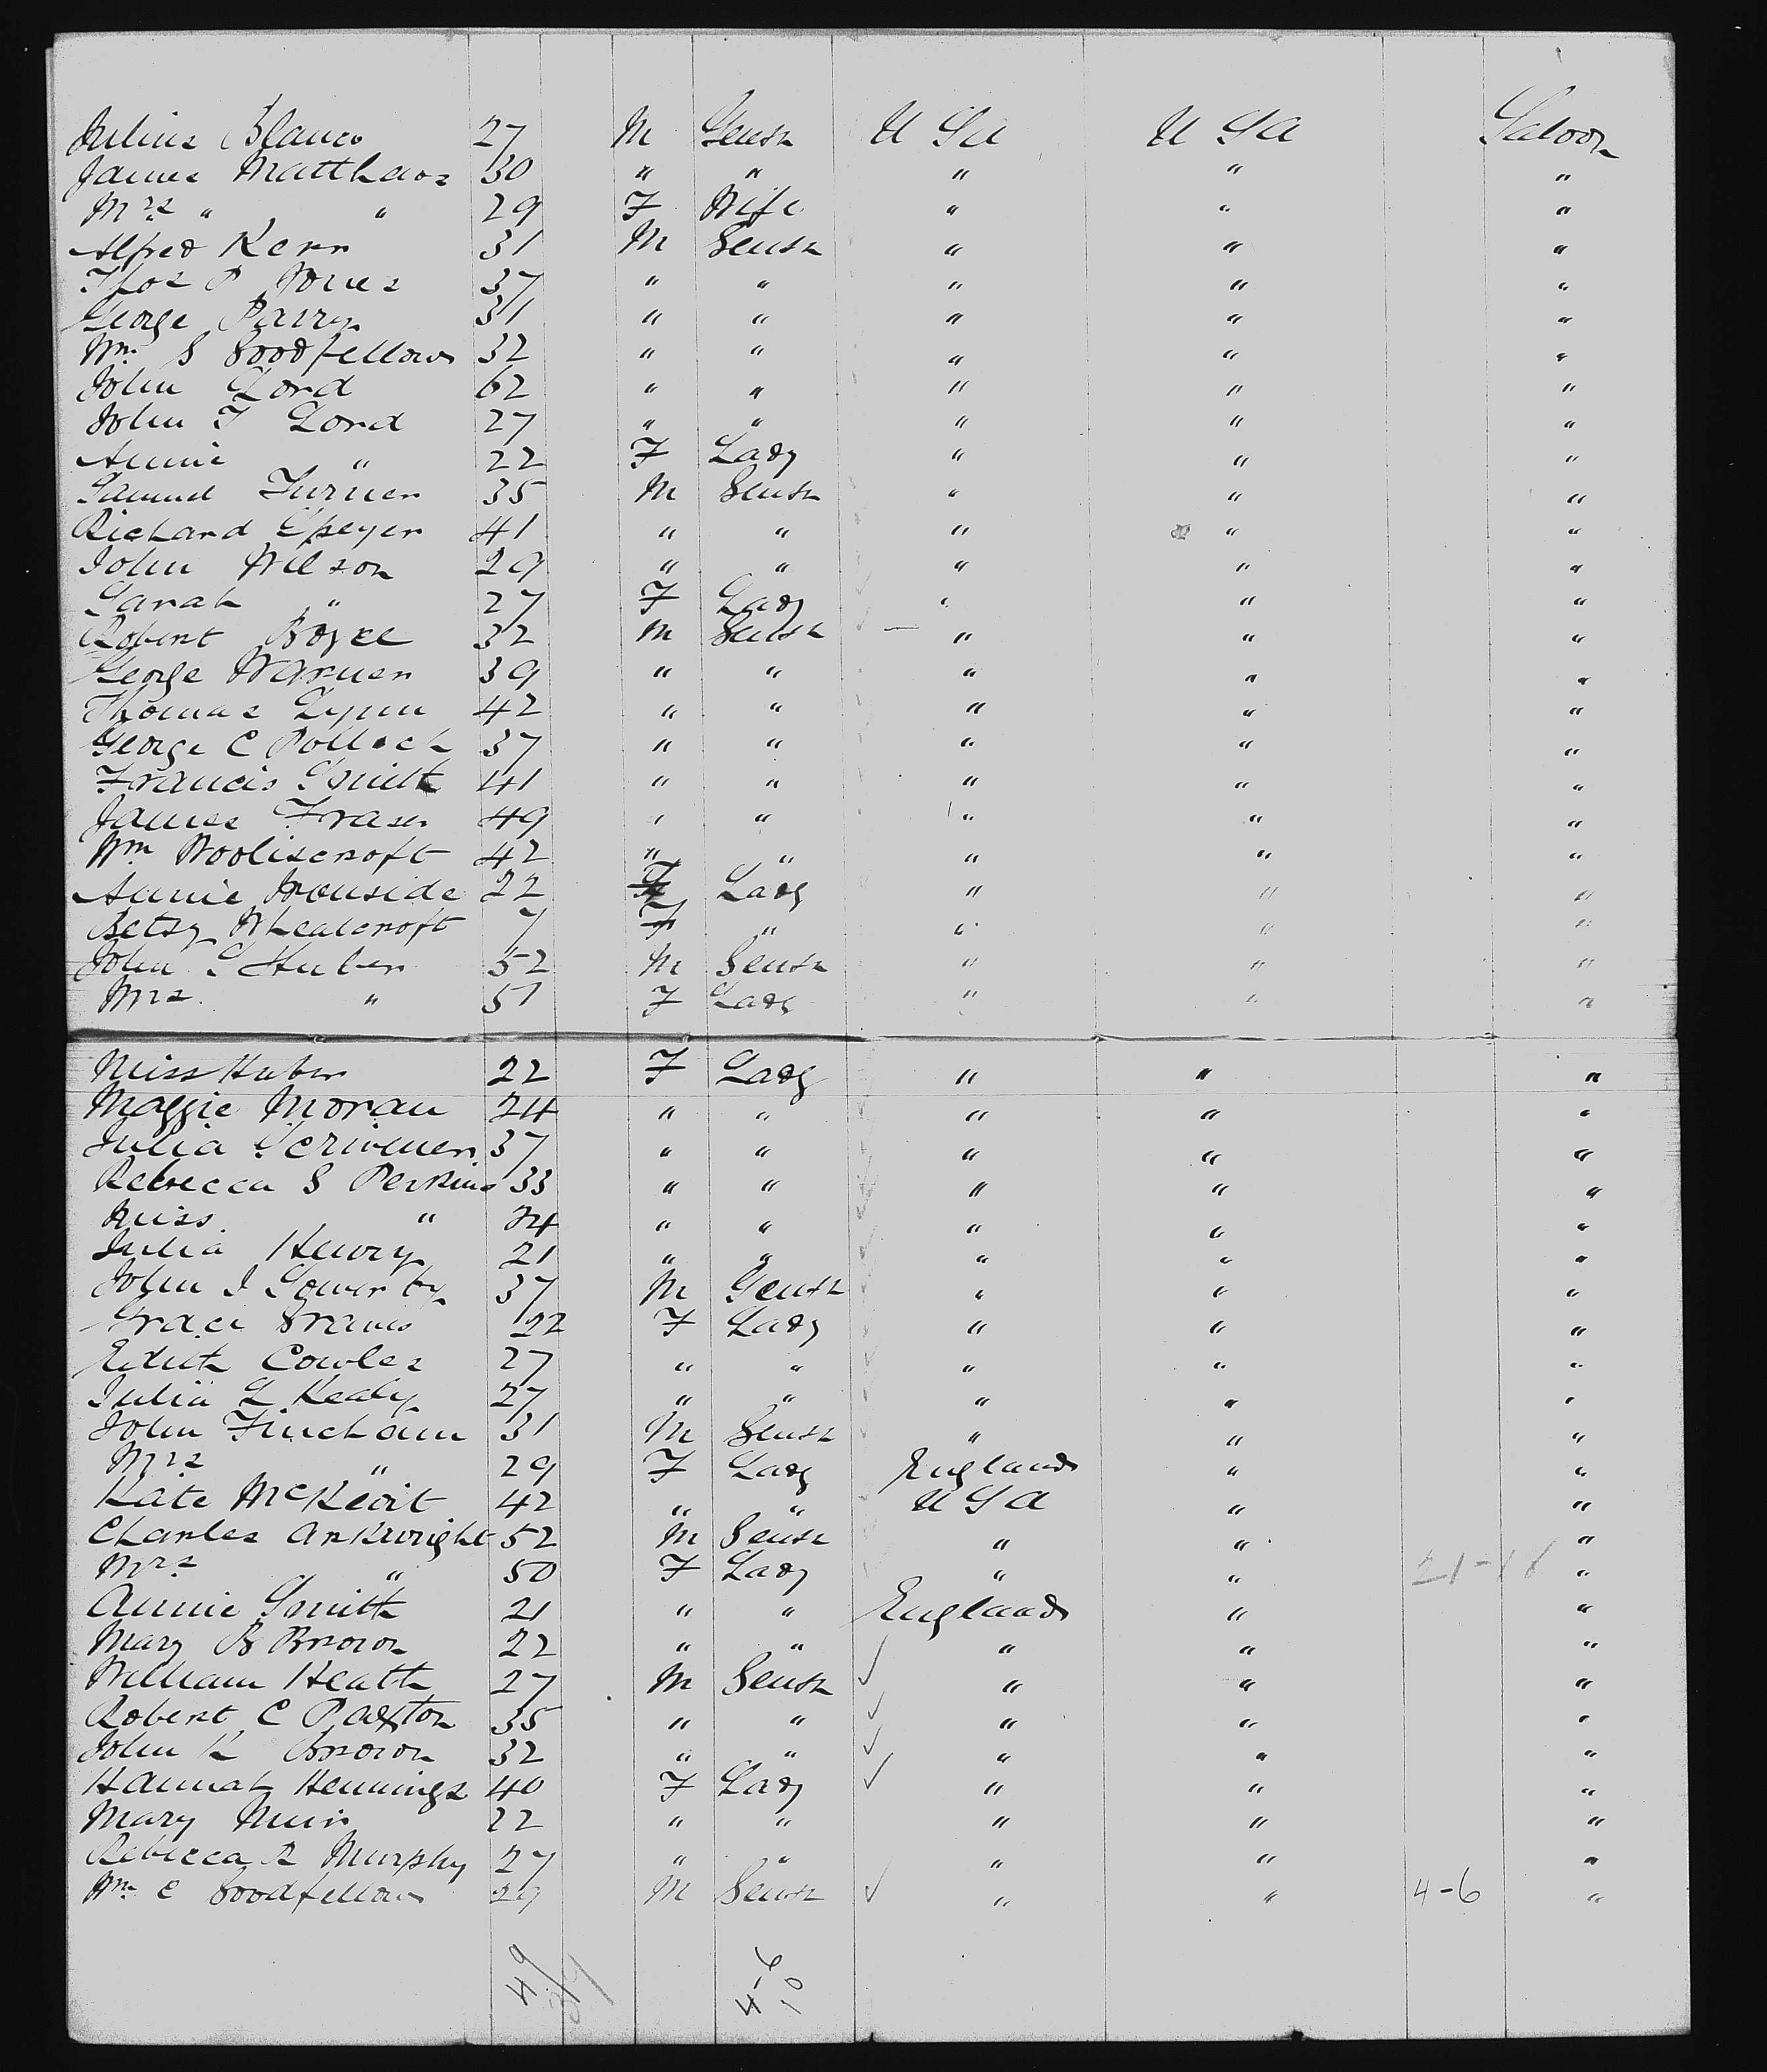 Julius Blanco 27 M Gentn U S a U S a Saloon
James Matthews 30 " " " " "
Mrs " " 29 F Wife " " "
Alfred Kerr 31 M Gentn " " "
Thos P Jones 37 " " " " "
George Parry 31 " " " " "
Wm S Goodfellow 32 " " " " "
John Lord 62 " " " " "
John T Lord 27 " " " " "
Annie " 22 F Lady " " "
Samuel Turner 35 M Gentn " " "
Richard Speyer 41 " " " " "
John Wilson 29 " " " " "
Sarah " 27 F Lady " " "
Robert Boyce 32 M Gentn " " "
George Warner 39 " " " " "
Thomas Lynn 42 " " " " "
George C Pollock 37 " " " " "
Francis Smith 41 " " " " "
James Fraser 49 " " " " "
Wm Wooliscroft 42 " " " " "
Annie Ironside 22 F Lady " " "
Betsy Whealcroft 7 F " " " "
John S Huber 52 M Gentn " " "
Mrs " 51 F Lady " " "
Miss Huber 22 F Lady " " "
Maggie Moran 24 " " " " "
Julia Scrivener 37 " " " " "
Rebecca S Perkins 33 " " " " "
Miss " 24 " " " " "
Julia Henry 21 " " " " "
John I Sowerby 37 M Gentn " " "
Grace Graves 22 F Lady " " "
Edith Cowles 27 " " " " "
Julia L Kealy 27 " " " " "
John Fincham 31 M Gentn " " "
Mrs " 29 F Lady England " "
Kate McKevit 42 " " U S a " "
Charles Arkwright 52 M Gentn " " "
Mrs " 50 F Lady " " "
Annie Smith 21 " " England " "
Mary B Brown 22 " " " " "
William Heath 27 M Gentn " " "
Robert C Paxton 35 " " " " "
John K Brown 32 " " " " "
Hannah Hennings 40 F Lady " " "
Mary Muir 22 " " " " "
Rebecca R Murphy 27 " " " " "
Wm C Goodfellow 29 M Gentn " " 4-6 "
49
4-6
10